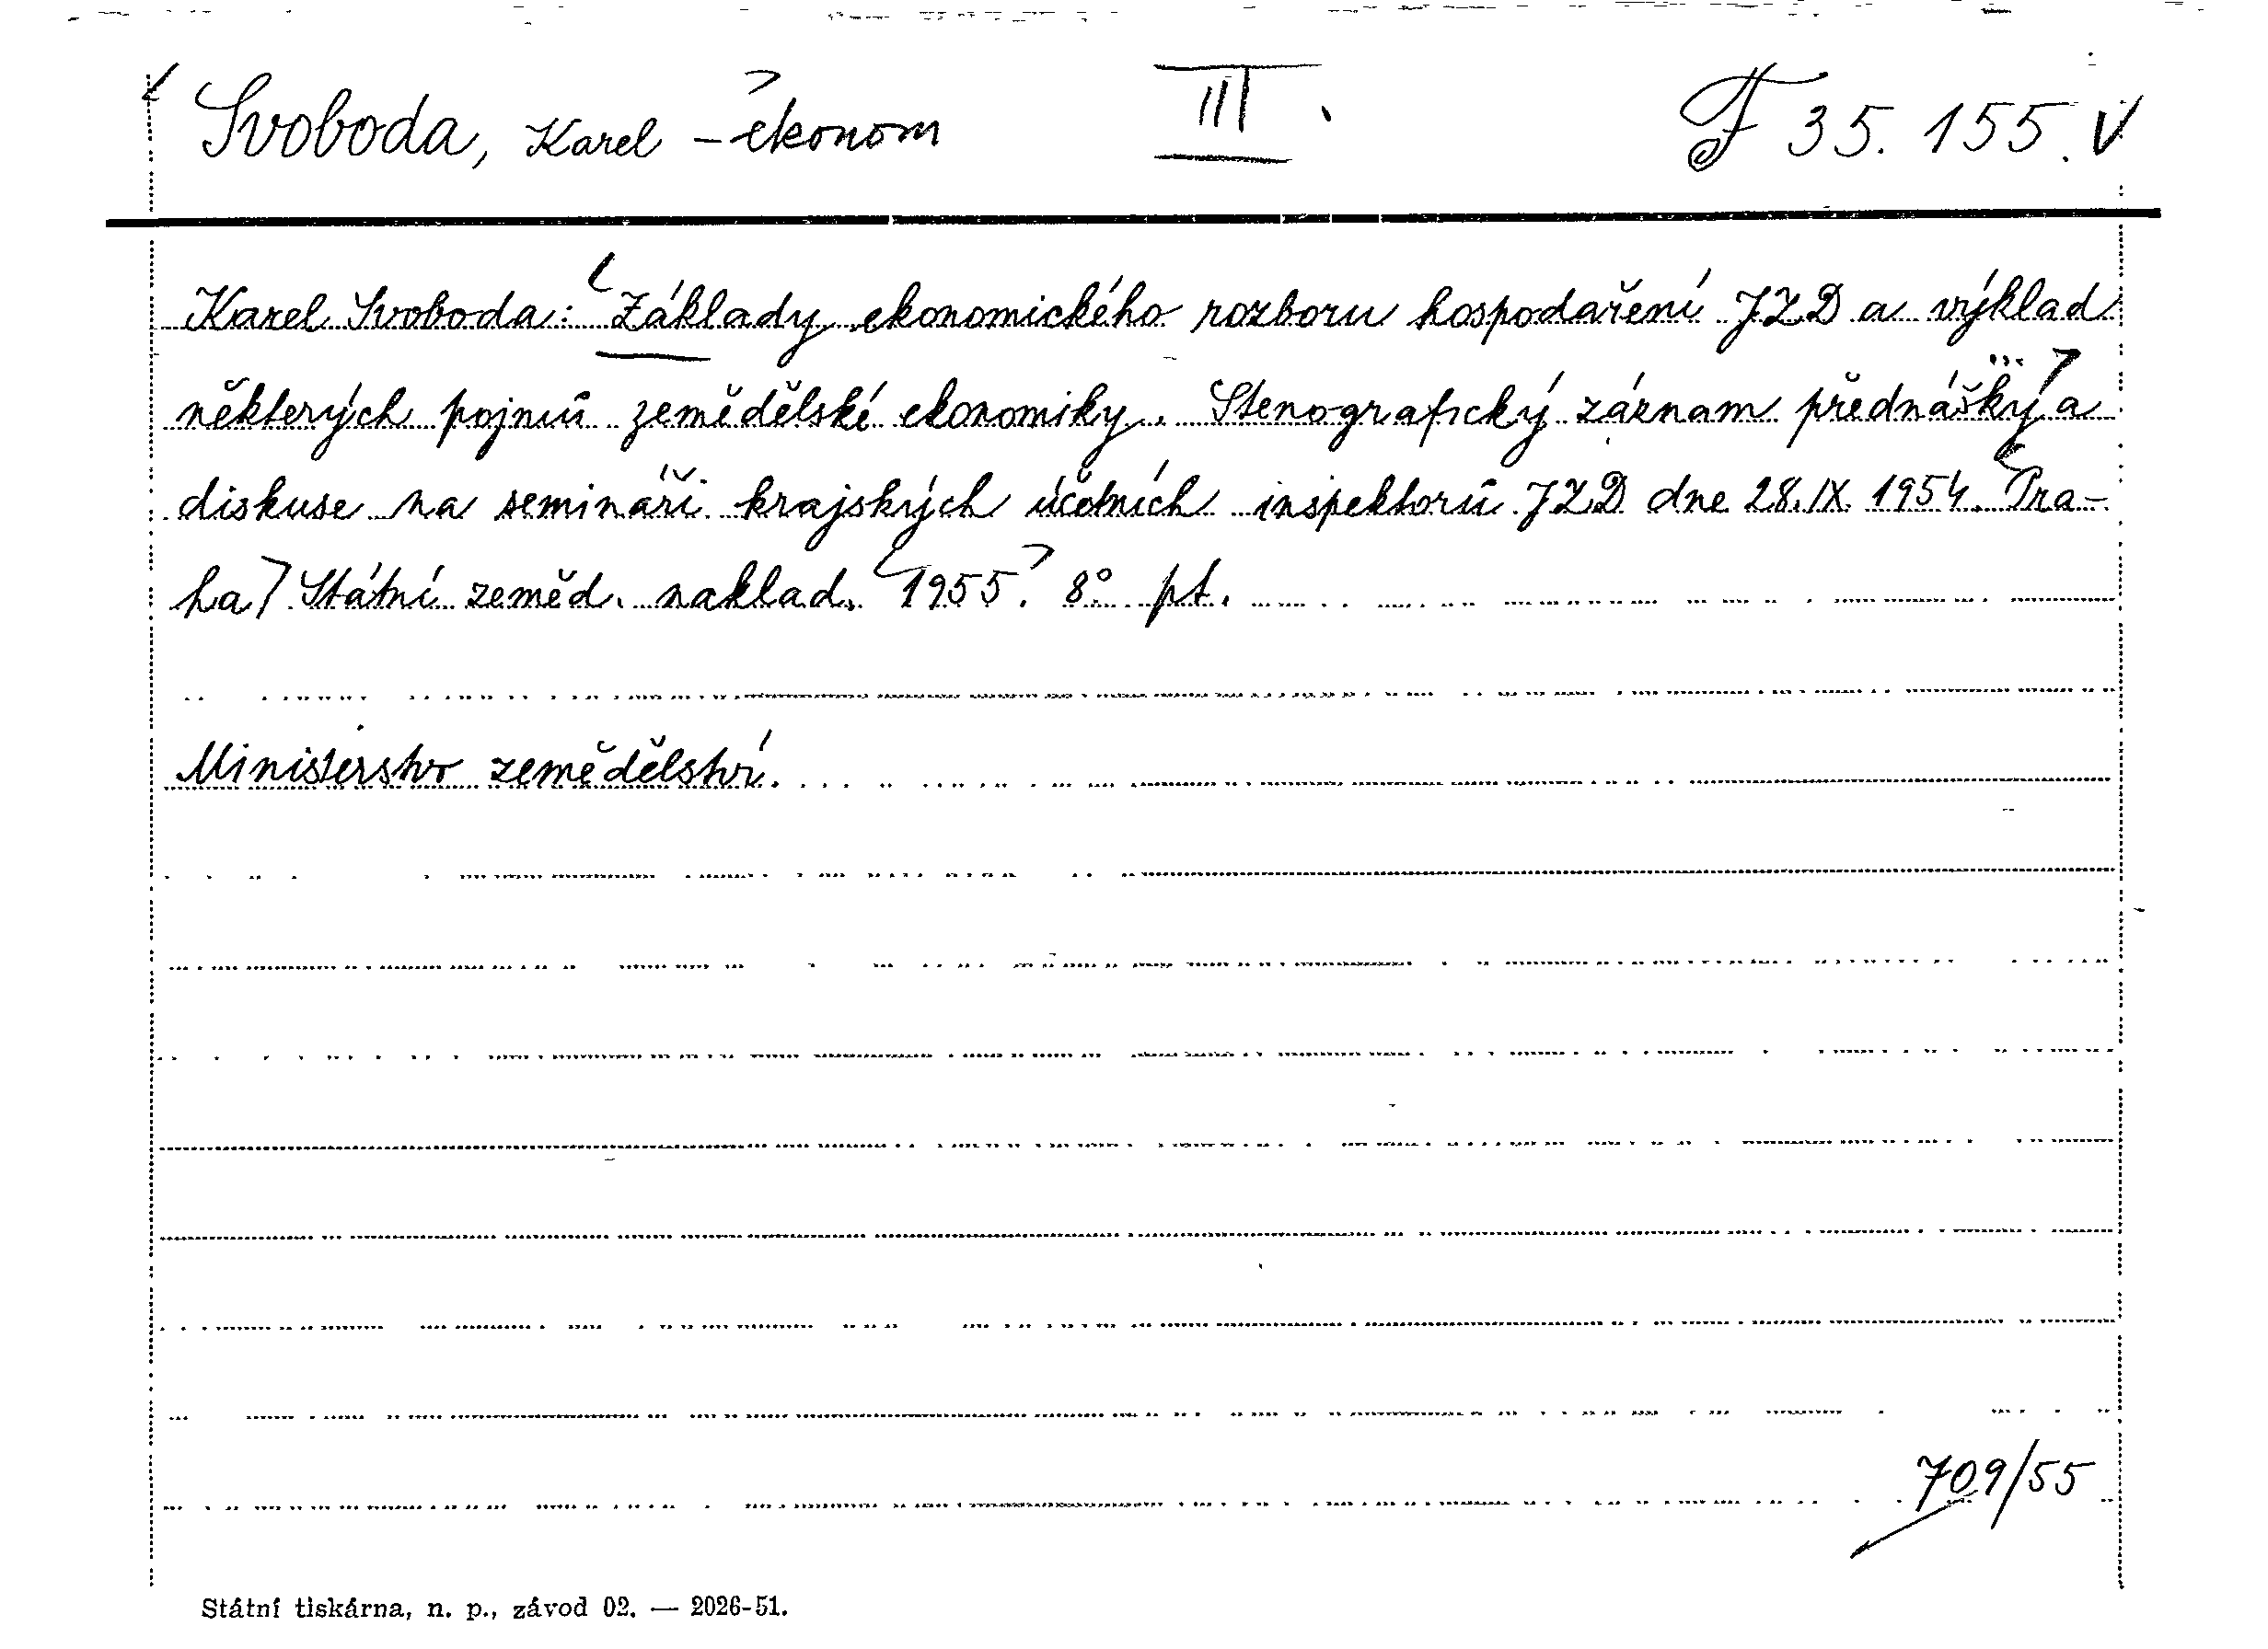 Svoboda, Karel – ekonom III. F 35.155.
Karel Svoboda: Základy ekonomického rozboru hospodaření JZD a výklad
některých pojmů zemědělské ekonomiky. Stenografický záznam přednášky a
diskuse na semináři krajských účetních inspektorů JZD dne 28. IX. 1954. Pra-
ha, Státní zeměd. naklad. 1955. 8° pt.
Ministerstvo zemědělství.
709/55
Státní tiskárna, n. p., závod 02. — 2026-51.